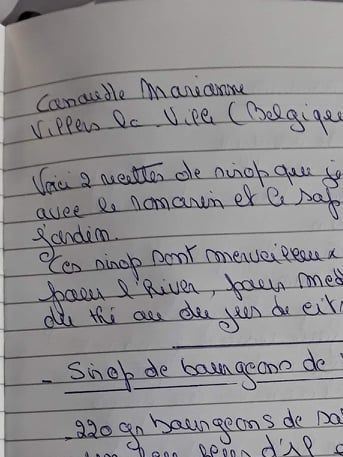 Canaudle Marianne
Villers la Ville (Belgique
Voici 2 recettes de sirop que je
avec le romarin et le sap
jardin.
Ces sirop sont merveilleux
pour l'hiver, pour med
du thé ou du jus de cit
- Sirop de bourgeons de
- 220 gr bourgeons de sa
un d'1l